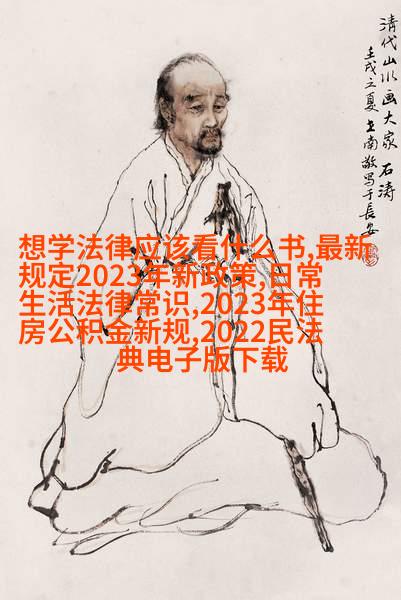 清代山水画大家 石涛
壬戌之夏 王南敬写于長安
想学法律应该看什么书,最新
规定2023年新政策,日常
生活法律常识,2023年住
房公积金新规,2022民法
典电子版下载